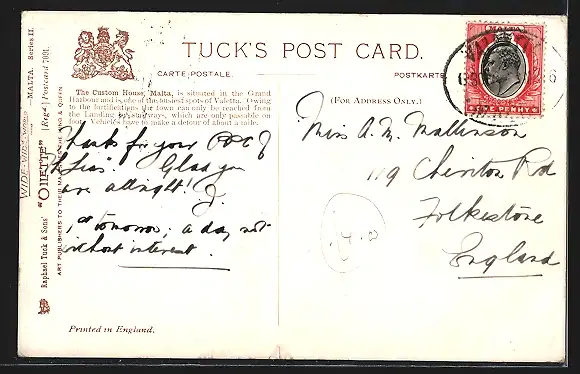 TUCK'S POST CARD.
CARTE-POSTALE.
POSTKARTE
(FOR ADDRESS ONLY.)
The Custom House, Malta, is situated in the Grand
Harbour and is one of the busiest spots of Valetta. Owing
to the fortifications the town can only be reached from
the Landing by stairways, which are only passable on
foot. Vehicles have to make a detour of about a mile.
Thanks for your PPC of
Glad you
are allright! J.
1st tomorrow, a day not
without interest.
Miss A. M. Mallinson
119 Cheriton Rd
Folkestone
England
MALTA
ONE PENNY
WIDE-WIDE-WORLD —MALTA. Series II.
Raphael Tuck & Sons' "OILETTE" [Regd.] Postcard 7091.
ART PUBLISHERS TO THEIR MAJESTIES THE KING & QUEEN
Printed in England.